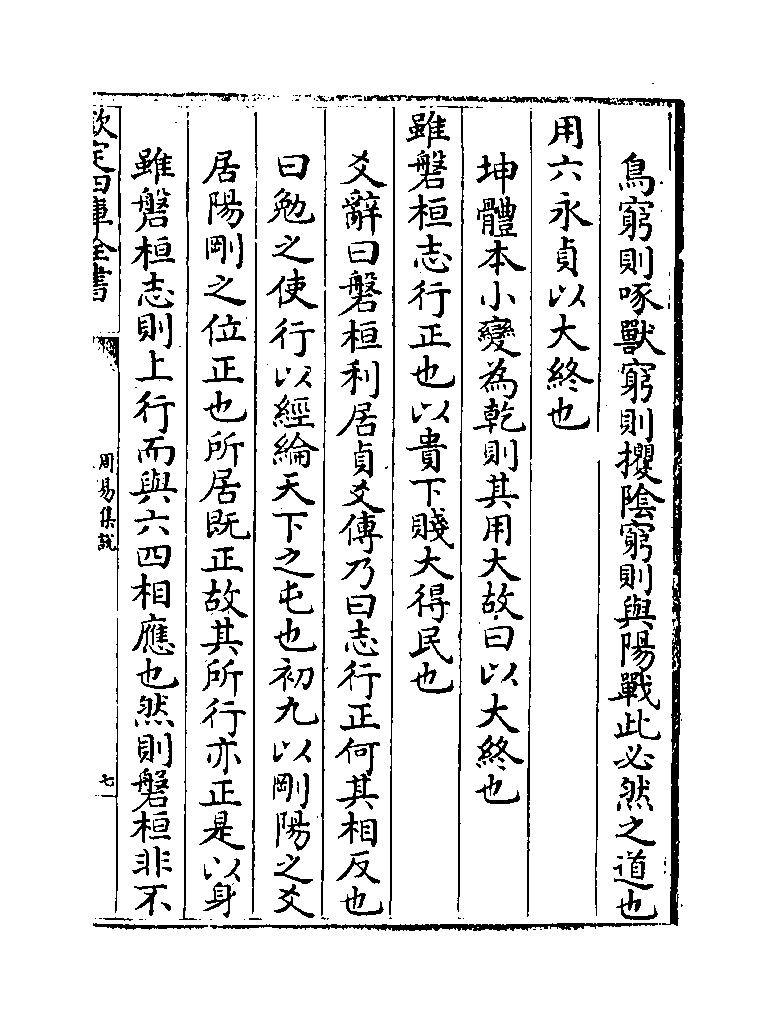 鳥窮則啄獸窮則攫陰窮則與陽戰此必然之道也
用六永貞以大終也
坤體本小變為乾則其用大故曰以大終也
雖磐桓志行正也以貴下賤大得民也
爻辭曰磐桓利居貞爻傳乃曰志行正何其相反也
曰勉之使行以經綸天下之屯也初九以剛陽之爻
居陽剛之位正也所居既正故其所行亦正是以身
雖磐桓志則上行而與六四相應也然則磐桓非不
欽定四庫全書
周易集說
七